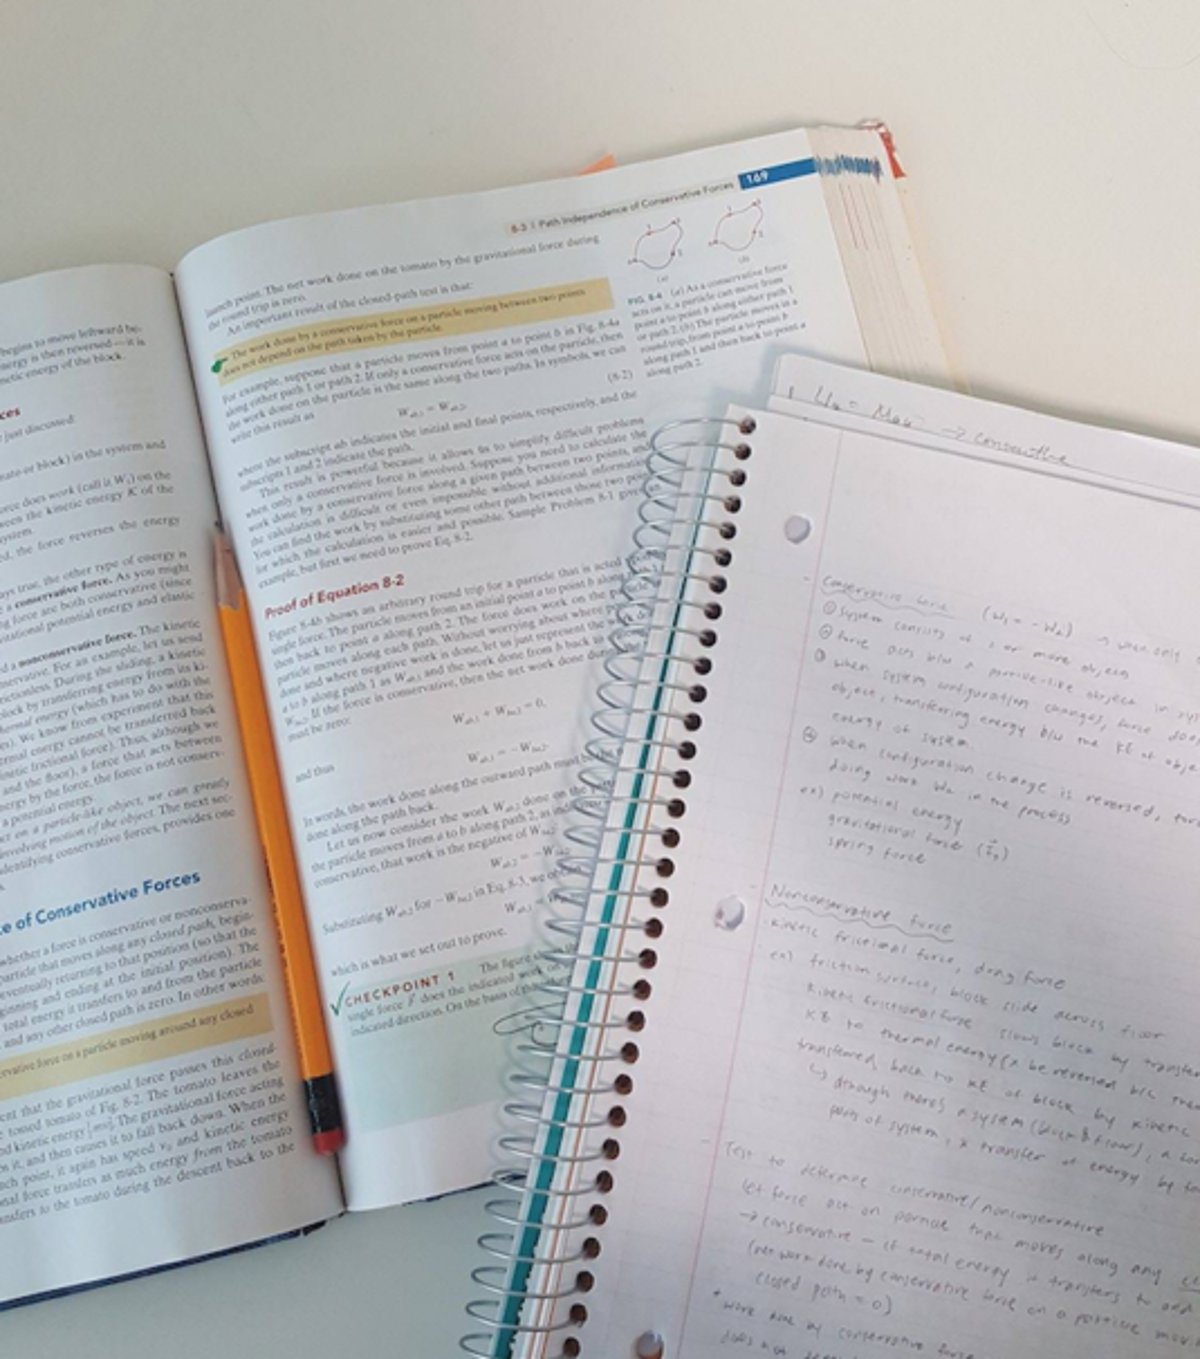 begins to move leftward be-
energy is then reversed—it is
netic energy of the block.
ces
just discussed:
mate or block) in the system and
orce does work (call it W₁) on the
ween the kinetic energy K of the
system.
ed, the force reverses the energy
ays true, the other type of energy is
a conservative force. As you might
ng force are both conservative (since
vitational potential energy and elastic
d a nonconservative force. The kinetic
nservative. For an example, let us send
rictionless. During the sliding, a kinetic
block by transferring energy from its ki-
hermal energy (which has to do with the
es). We know from experiment that this
ermal energy cannot be transferred back
inetic frictional force). Thus, although we
and the floor), a force that acts between
nergy by the force, the force is not conserv-
a potential energy.
act on a particle-like object, we can greatly
involving motion of the object. The next sec-
identifying conservative forces, provides one
ce of Conservative Forces
whether a force is conservative or nonconserva-
particle that moves along any closed path, begin-
eventually returning to that position (so that the
ginning and ending at the initial position). The
total energy it transfers to and from the particle
and any other closed path is zero. In other words:
ervative force on a particle moving around any closed
ent that the gravitational force passes this closed-
e tossed tomato of Fig. 8-2. The tomato leaves the
nd kinetic energy ½mv₀². The gravitational force acting
ws it, and then causes it to fall back down. When the
nch point, it again has speed v₀ and kinetic energy
onal force transfers as much energy from the tomato
ansfers to the tomato during the descent back to the
8-3 | Path Independence of Conservative Forces 169
launch point. The net work done on the tomato by the gravitational force during
the round trip is zero.
An important result of the closed-path test is that:
The work done by a conservative force on a particle moving between two points
does not depend on the path taken by the particle.
For example, suppose that a particle moves from point a to point b in Fig. 8-4a
along either path 1 or path 2. If only a conservative force acts on the particle, then
the work done on the particle is the same along the two paths. In symbols, we can
write this result as
W_ab,1 = W_ab,2, (8-2)
where the subscript ab indicates the initial and final points, respectively, and the
subscripts 1 and 2 indicate the path.
This result is powerful because it allows us to simplify difficult problems
when only a conservative force is involved. Suppose you need to calculate the
work done by a conservative force along a given path between two points, and
the calculation is difficult or even impossible without additional information.
You can find the work by substituting some other path between those two points
for which the calculation is easier and possible. Sample Problem 8-1 gives
example, but first we need to prove Eq. 8-2.
Proof of Equation 8-2
Figure 8-4b shows an arbitrary round trip for a particle that is acted
single force. The particle moves from an initial point a to point b along
then back to point a along path 2. The force does work on the
particle moves along each path. Without worrying about where
done and where negative work is done, let us just represent the
a to b along path 1 as W_ab,1 and the work done from b back to
W_ba,2. If the force is conservative, then the net work done during
must be zero:
W_ab,1 + W_ba,2 = 0,
and thus
W_ab,1 = −W_ba,2.
In words, the work done along the outward path must be
done along the path back.
Let us now consider the work W_ab,2 done on the
the particle moves from a to b along path 2, as
conservative, that work is the negative of W_ba,2
W_ab,2 = −W_ba,2
Substituting W_ab,2 for −W_ba,2 in Eq. 8-3, we
W_ab,1
which is what we set out to prove.
CHECKPOINT 1 The figure
single force F does the indicated work on
indicated direction. On the basis of
(a) (b)
FIG. 8-4 (a) As a conservative force
acts on it, a particle can move from
point a to point b along either path 1
or path 2. (b) The particle moves in a
round trip, from point a to point b
along path 1 and then back to point a
along path 2.
→ conservative
Conservative force (W₁ = -W₂) → when only
① system consists of 2 or more objects
② force acts b/w a particle-like object in sys
③ when system configuration changes, force does
object, transferring energy b/w the KE of obje
energy of system
④ when configuration change is reversed, forc
doing work W₂ in the process
ex) potential energy
gravitational force
spring force
Nonconservative force
kinetic frictional force, drag force
ex) friction surface, block slide across floor
kinetic frictional force slows block by transfer
KE to thermal energy (x be reversed b/c ther
transferred back to KE of block by kinetic
↳ though there's a system (block & floor), a
parts of system, x transfer of energy by
Test to determine conservative/nonconservative
let force act on particle that moves along any
→ conservative - if total energy it transfers to and
(net work done by conservative force on a particle movin
closed path = 0)
* work done by conservative force
does not